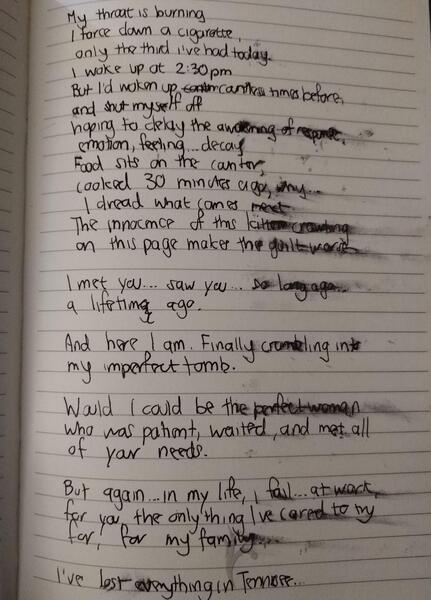 My throat is burning
I force down a cigarette,
only the third I've had today.
I woke up at 2:30pm
But I'd woken up countless times before,
and shut myself off
hoping to delay the awakening of response,
emotion, feeling... decay
Food sits on the counter,
cooked 30 minutes ago, my...
I dread what comes next
The innocence of this kitten crawling
on this page makes the guilt worse
I met you... saw you... so long ago...
a lifetime ago.
And here I am. Finally crumbling into
my imperfect tomb.
Would I could be the perfect woman
who was patient, waited, and met all
of your needs.
But again... in my life, I fail... at work,
for you, the only thing I've cared to try
for, for my family...
I've lost everything in